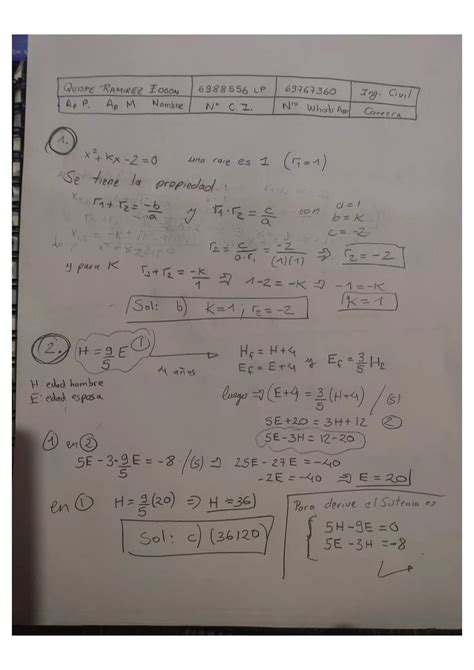 QUISPE RAMIREZ EDSON 6988556 LP 69767360 Ing. Civil
Ap P. Ap M Nombre N° C.I. N° WhatsApp Carrera
1.
x²+kx-2=0 una raíz es 1 (r₁=1)
Se tiene la propiedad
r₁+r₂=-b/a y r₁·r₂=c/a con a=1
b=k
c=-2
r₂=c/(a·r₁)=-2/((1)(1)) ⇒ r₂=-2
y para K r₁+r₂=-k/1 ⇒ 1-2=-k ⇒ -1=-k
k=1
Sol: b) k=1; r₂=-2
2. H=9/5 E ① 4 años H_f=H+4
E_f=E+4 y E_f=3/5 H_f
H: edad hombre
E: edad esposa
luego ⇒ (E+4)=3/5(H+4) /(5)
5E+20=3H+12 ②
5E-3H=12-20
① en ②
5E-3·9/5E=-8 /(5) ⇒ 25E-27E=-40
-2E=-40 ⇒ E=20
en ① H=9/5(20) ⇒ H=36
Sol: c) (36;20)
Para derive el Sistema es
5H-9E=0
5E-3H=-8